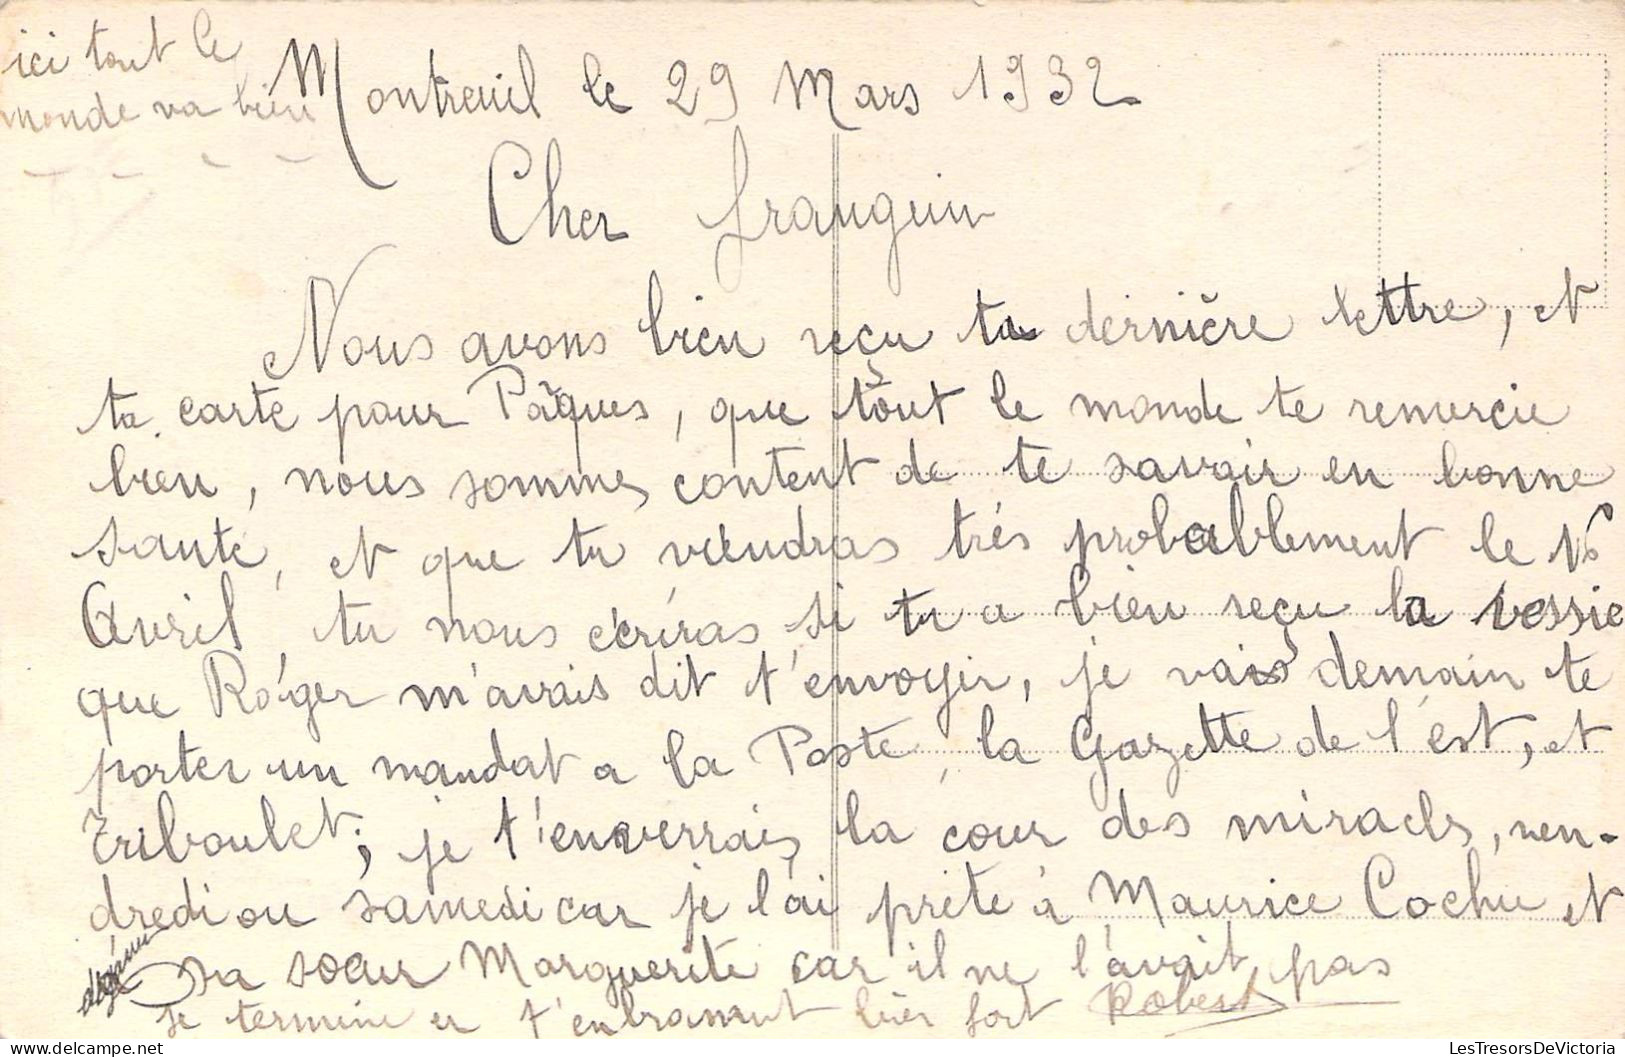 ici tout le
monde va bien
Montreuil le 29 Mars 1932
Cher frangin
Nous avons bien reçu ta dernière lettre, et
ta carte pour Pâques, que tout le monde te remercie
bien, nous sommes content de te savoir en bonne
santé, et que tu viendras très probablement le
Avril, tu nous écriras si tu a bien reçu la vessie
que Roger m'avais dit t'envoyer, je vais demain te
porter un mandat a la Poste, la Gazette de l'est, et
Triboulet; je t'enverrais la cour des miracls, ven-
dredi ou samedi car je l'ai prété à Maurice Cochu et
sa soeur Marguerite car il ne l'avait pas
Je termine en t'enbrassant bien fort Robert
LesTresorsDeVictoria.com